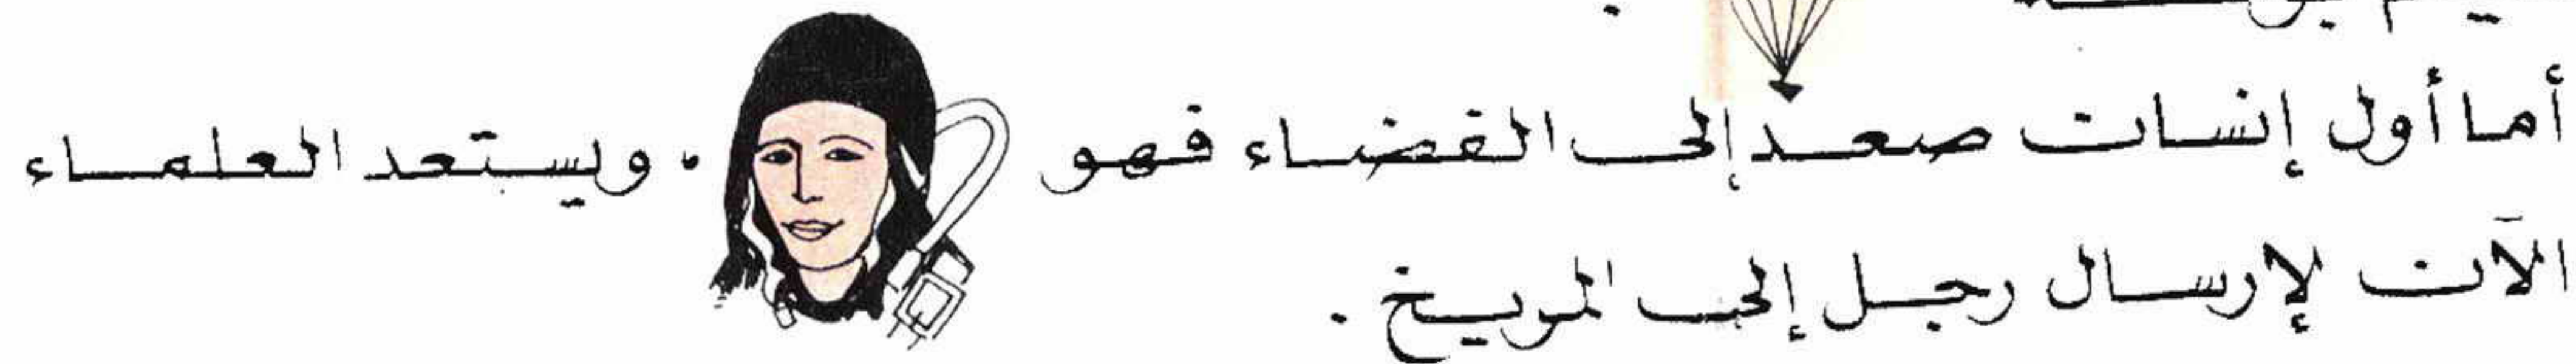 أما أول إنسان صعد إلى الفضاء فهو . ويستعد العلماء
الآن لإرسال رجل إلى المريخ .